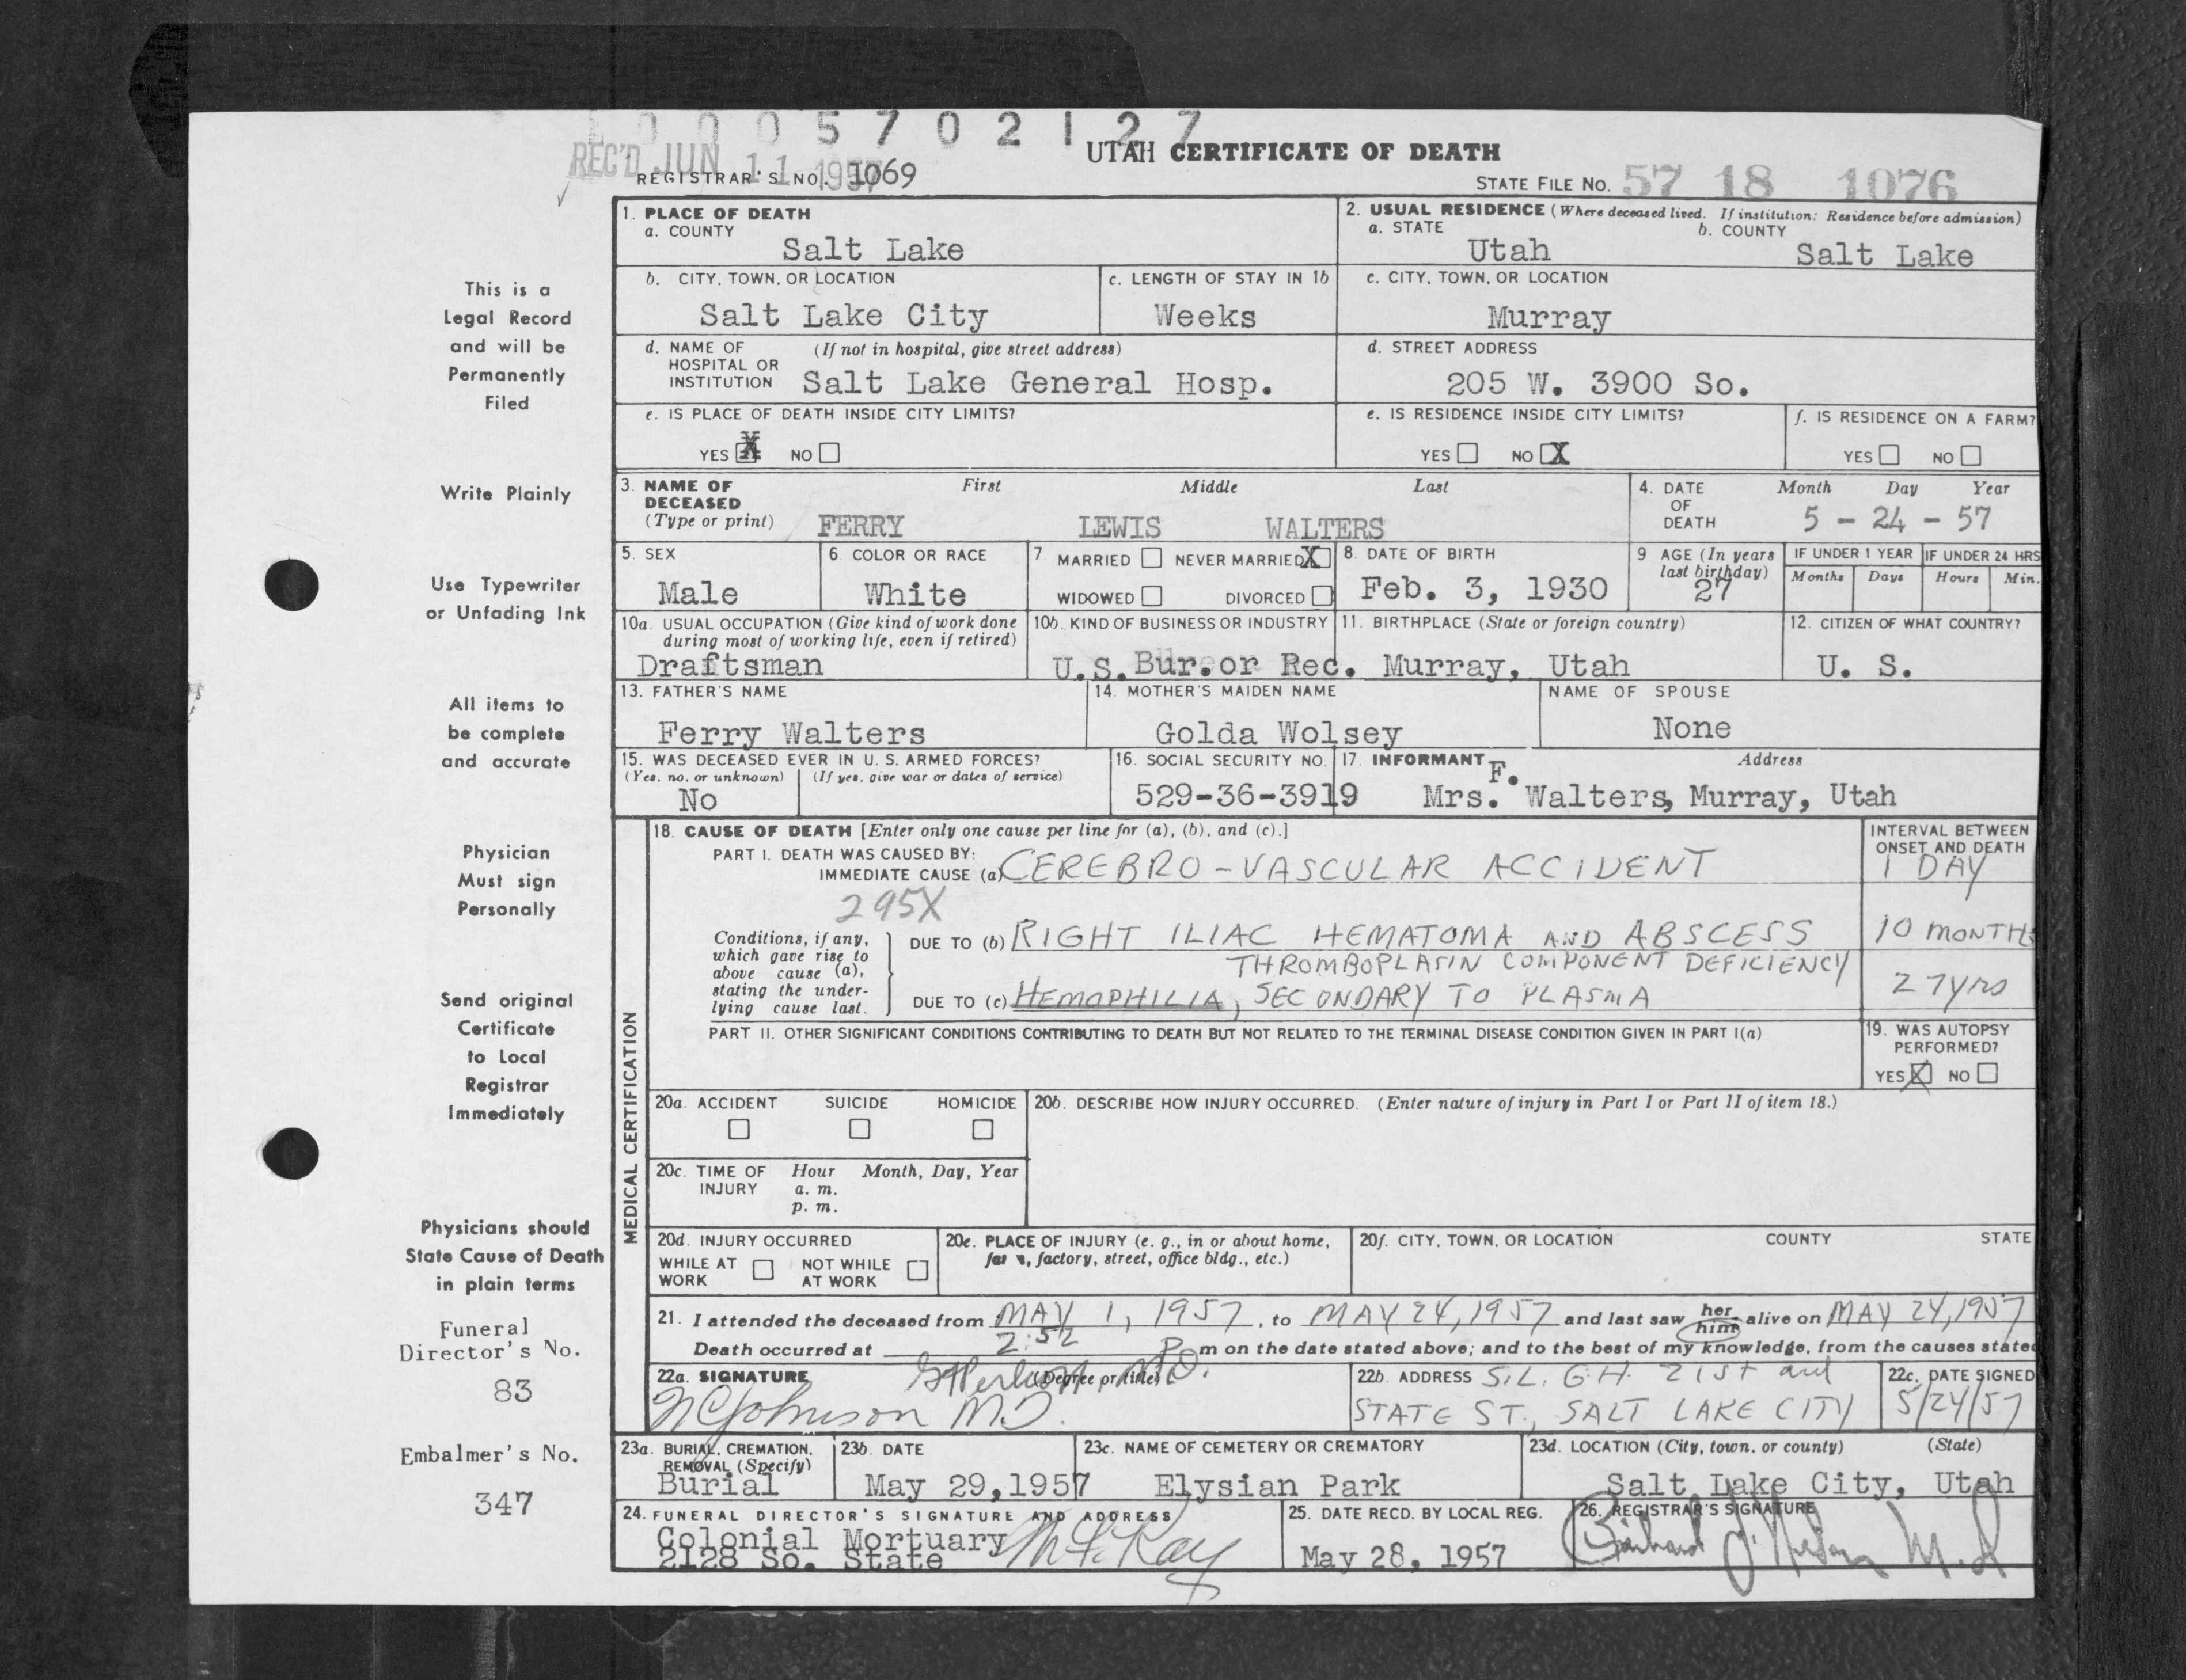 0005702127
UTAH CERTIFICATE OF DEATH
REC'D JUN 11 1957
REGISTRAR'S NO. 1069
STATE FILE NO. 57 18 1076
This is a
Legal Record
and will be
Permanently
Filed
Write Plainly
Use Typewriter
or Unfading Ink
All items to
be complete
and accurate
Physician
Must sign
Personally
Send original
Certificate
to Local
Registrar
Immediately
Physicians should
State Cause of Death
in plain terms
Funeral
Director's No.
83
Embalmer's No.
347
1. PLACE OF DEATH
a. COUNTY
Salt Lake
2. USUAL RESIDENCE (Where deceased lived. If institution: Residence before admission)
a. STATE b. COUNTY
Utah Salt Lake
b. CITY, TOWN, OR LOCATION
Salt Lake City
c. LENGTH OF STAY IN 1b
Weeks
c. CITY, TOWN, OR LOCATION
Murray
d. NAME OF (If not in hospital, give street address)
HOSPITAL OR
INSTITUTION Salt Lake General Hosp.
d. STREET ADDRESS
205 W. 3900 So.
e. IS PLACE OF DEATH INSIDE CITY LIMITS?
YES X NO
e. IS RESIDENCE INSIDE CITY LIMITS?
YES NO X
f. IS RESIDENCE ON A FARM?
YES NO
3. NAME OF First Middle Last
DECEASED
(Type or print) FERRY LEWIS WALTERS
4. DATE Month Day Year
OF
DEATH 5 - 24 - 57
5. SEX
Male
6. COLOR OR RACE
White
7. MARRIED NEVER MARRIED X
WIDOWED DIVORCED
8. DATE OF BIRTH
Feb. 3, 1930
9 AGE (In years
last birthday)
27
IF UNDER 1 YEAR IF UNDER 24 HRS
Months Days Hours Min.
10a. USUAL OCCUPATION (Give kind of work done
during most of working life, even if retired)
Draftsman
10b. KIND OF BUSINESS OR INDUSTRY
U.S. Bur. or Rec.
11. BIRTHPLACE (State or foreign country)
Murray, Utah
12. CITIZEN OF WHAT COUNTRY?
U. S.
13. FATHER'S NAME
Ferry Walters
14. MOTHER'S MAIDEN NAME
Golda Wolsey
NAME OF SPOUSE
None
15. WAS DECEASED EVER IN U. S. ARMED FORCES?
(Yes, no, or unknown) (If yes, give war or dates of service)
No
16. SOCIAL SECURITY NO.
529-36-3919
17. INFORMANT Address
Mrs. F. Walters, Murray, Utah
MEDICAL CERTIFICATION
18. CAUSE OF DEATH [Enter only one cause per line for (a), (b), and (c).]
INTERVAL BETWEEN
ONSET AND DEATH
PART I. DEATH WAS CAUSED BY:
IMMEDIATE CAUSE (a) CEREBRO-VASCULAR ACCIDENT 1 DAY
295X
Conditions, if any,
which gave rise to
above cause (a),
stating the under-
lying cause last.
DUE TO (b) RIGHT ILIAC HEMATOMA AND ABSCESS 10 MONTHS
THROMBOPLASIN COMPONENT DEFICIENCY
DUE TO (c) HEMOPHILIA, SECONDARY TO PLASMA 27yrs
PART II. OTHER SIGNIFICANT CONDITIONS CONTRIBUTING TO DEATH BUT NOT RELATED TO THE TERMINAL DISEASE CONDITION GIVEN IN PART I(a)
19. WAS AUTOPSY
PERFORMED?
YES X NO
20a. ACCIDENT SUICIDE HOMICIDE
20b. DESCRIBE HOW INJURY OCCURRED. (Enter nature of injury in Part I or Part II of item 18.)
20c. TIME OF Hour Month, Day, Year
INJURY a. m.
p. m.
20d. INJURY OCCURRED
WHILE AT NOT WHILE
WORK AT WORK
20e. PLACE OF INJURY (e. g., in or about home,
farm, factory, street, office bldg., etc.)
20f. CITY, TOWN, OR LOCATION COUNTY STATE
21. I attended the deceased from MAY 1, 1957, to MAY 24, 1957 and last saw her him alive on MAY 24, 1957
Death occurred at 2:52 P m on the date stated above; and to the best of my knowledge, from the causes state
22a. SIGNATURE (Degree or title) M.D.
Johnson M.D.
22b. ADDRESS S.L.G.H. 21st and
STATE ST., SALT LAKE CITY
22c. DATE SIGNED
5/24/57
23a. BURIAL, CREMATION,
REMOVAL (Specify)
Burial
23b. DATE
May 29, 1957
23c. NAME OF CEMETERY OR CREMATORY
Elysian Park
23d. LOCATION (City, town, or county) (State)
Salt Lake City, Utah
24. FUNERAL DIRECTOR'S SIGNATURE AND ADDRESS
Colonial Mortuary
2128 So. State
25. DATE RECD. BY LOCAL REG.
May 28, 1957
26. REGISTRAR'S SIGNATURE
M.D